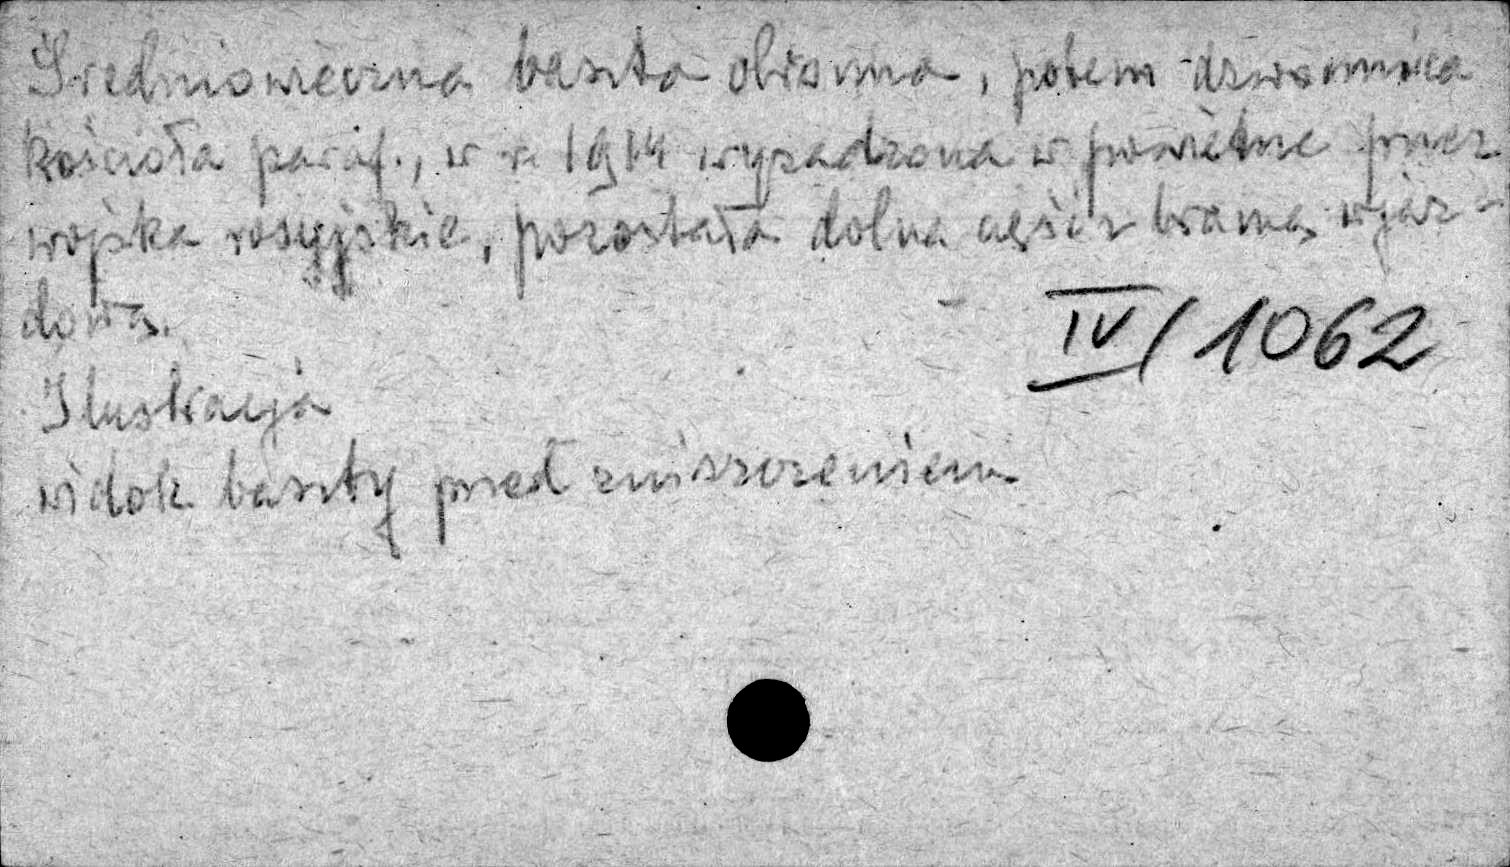 Średniowieczna baszta obronna, potem dzwonnica
kościoła paraf., w r. 1914 wysadzona w powietrze przez
wojska rosyjskie, pozostała dolna część z bramą wjaz-
dową.
IV/1062
Ilustracja
widok baszty przed zniszczeniem